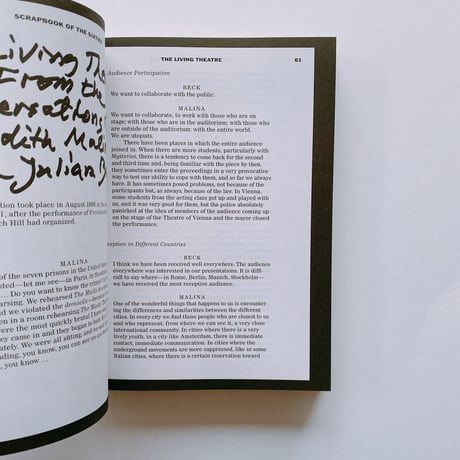 SCRAPBOOK OF THE
Living
From the
Julian
tion took place in August 1968 at
1, after the performance of
ch Hill had organized.
MALINA
of the seven prisons in the United States
sted—let me see—in Paris, in
... Do you want to know the
arsing. We rehearsed The
nd we violated the
en in a room rehearsing The
ey came in and they began to
were the most quickly
ately. We were all sitting, and
nding, you know, you can see we are
you know, you know ...
THE LIVING THEATRE 61
Audience Participation
BECK
We want to collaborate with the public.
MALINA
We want to collaborate, to work with those who are on
stage; with those who are in the auditorium; with those who
are outside of the auditorium: with the entire world.
We are utopists.
There have been places in which the entire audience
joined in. When there are more students, particularly with
Mysteries, there is a tendency to come back for the second
and third time and, being familiar with the piece by then,
they sometimes enter the proceedings in a very provocative
way to test our ability to cope with them, and so far we always
have. It has sometimes posed problems, not because of the
participants but, as always, because of the law. In Vienna,
some students from the acting class got up and played with
us, and it was very good for them, but the police absolutely
panicked at the idea of members of the audience coming up
on the stage of the Theatre of Vienna and the mayor closed
the performance.
eception in Different Countries
BECK
I think we have been received well everywhere. The audience
everywhere was interested in our presentations. It is diffi-
cult to say where—in Rome, Berlin, Munich, Stockholm—
we have received the most receptive audience.
MALINA
One of the wonderful things that happens to us is encounter-
ing the differences and similarities between the different
cities. In every city we find those people who are closest to us
and who represent, from where we can see it, a very close
international community. In cities where there is a very
lively youth, in a city like Amsterdam, there is immediate
contact, immediate communication. In cities where the
underground movements are more suppressed, like in some
Italian cities, where there is a certain reservation toward